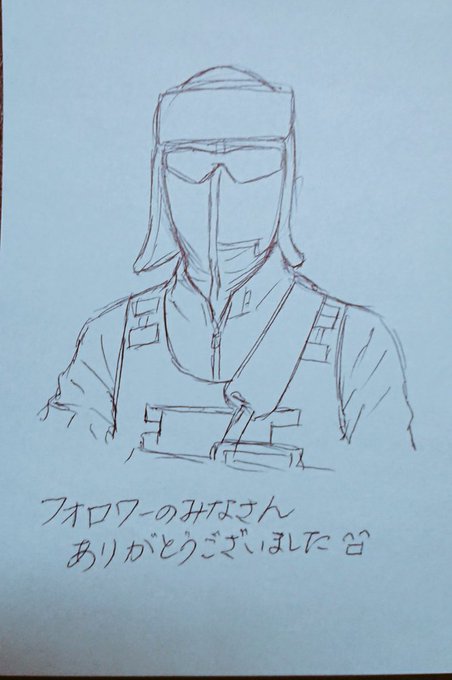 フォロワーのみなさん
ありがとうございました